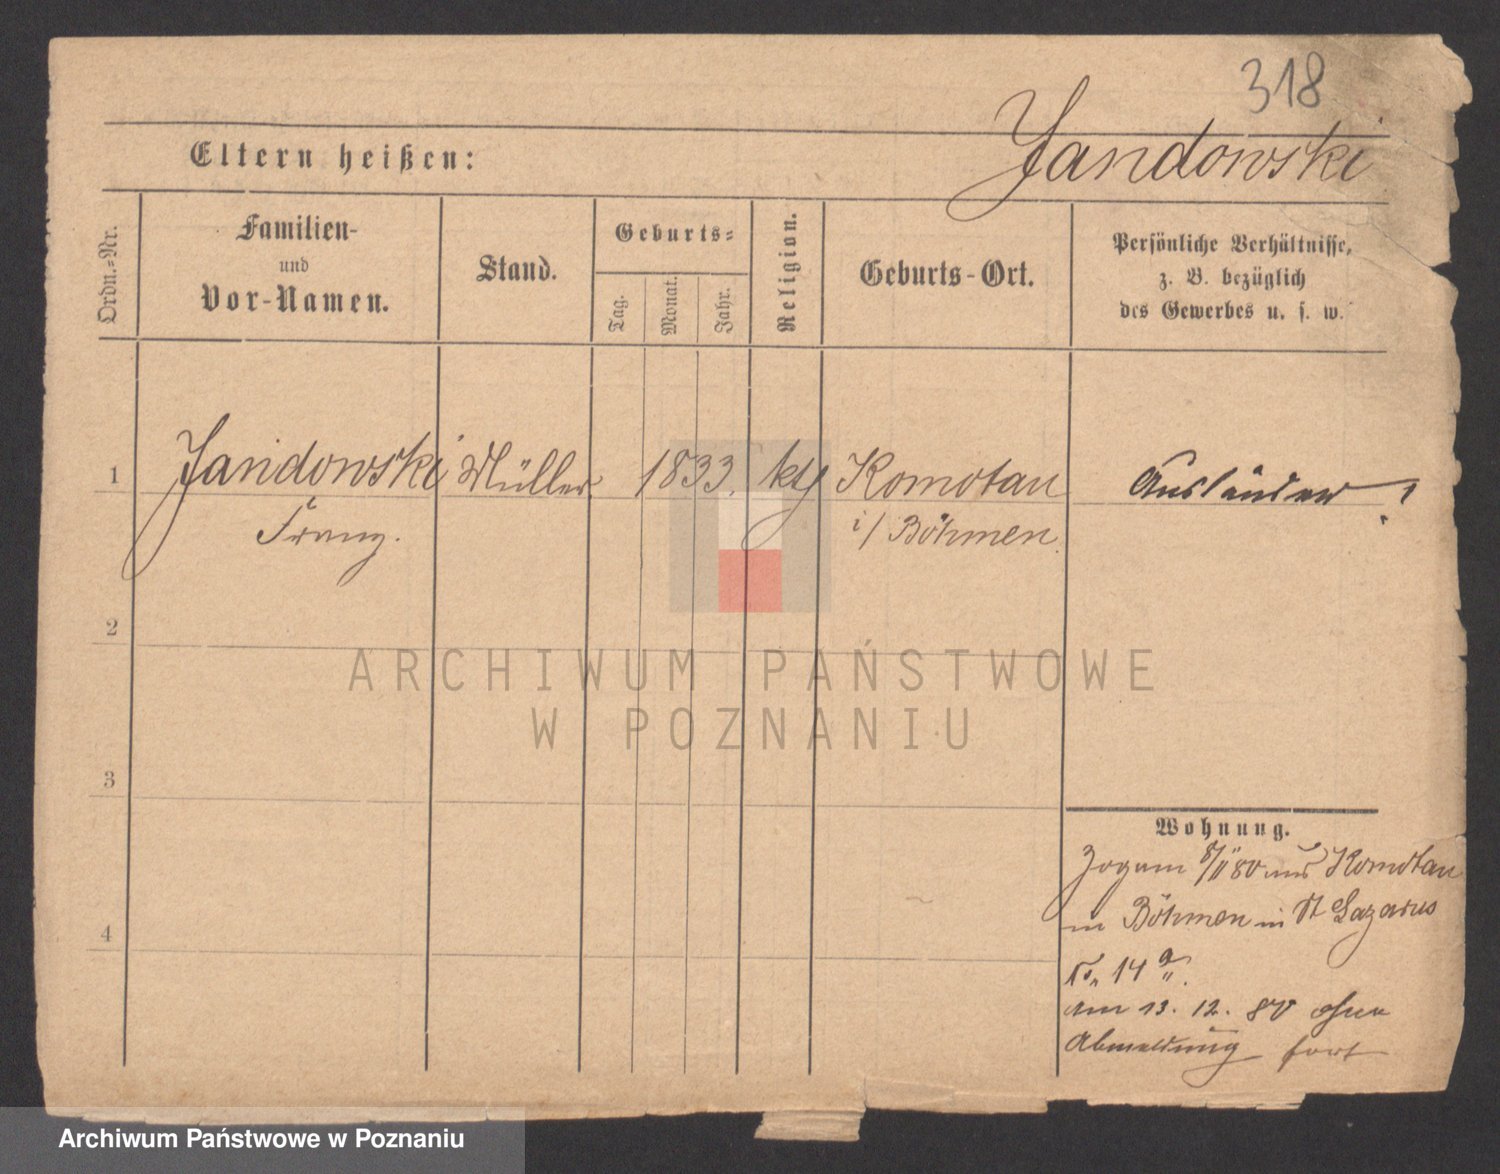 318
Jandowski
Eltern heißen:
Ordn.-Nr.
Familien-
und
Vor-Namen.
Stand.
Geburts-
Tag.
Monat.
Jahr.
Religion.
Geburts-Ort.
Persönliche Verhältnisse,
z. B. bezüglich
des Gewerbes u. s. w.
1
Jandowski Müller 1833. kth Komotau Ausländer!
Franz. i/ Böhmen.
2
ARCHIWUM PAŃSTWOWE
W POZNANIU
3
Wohnung.
Zog am 8/II 80 aus Komotau
in Böhmen in St Lazarus
4
No 14 a.
am 13. 12. 80 ohne
Abmeldung fort
Archiwum Państwowe w Poznaniu